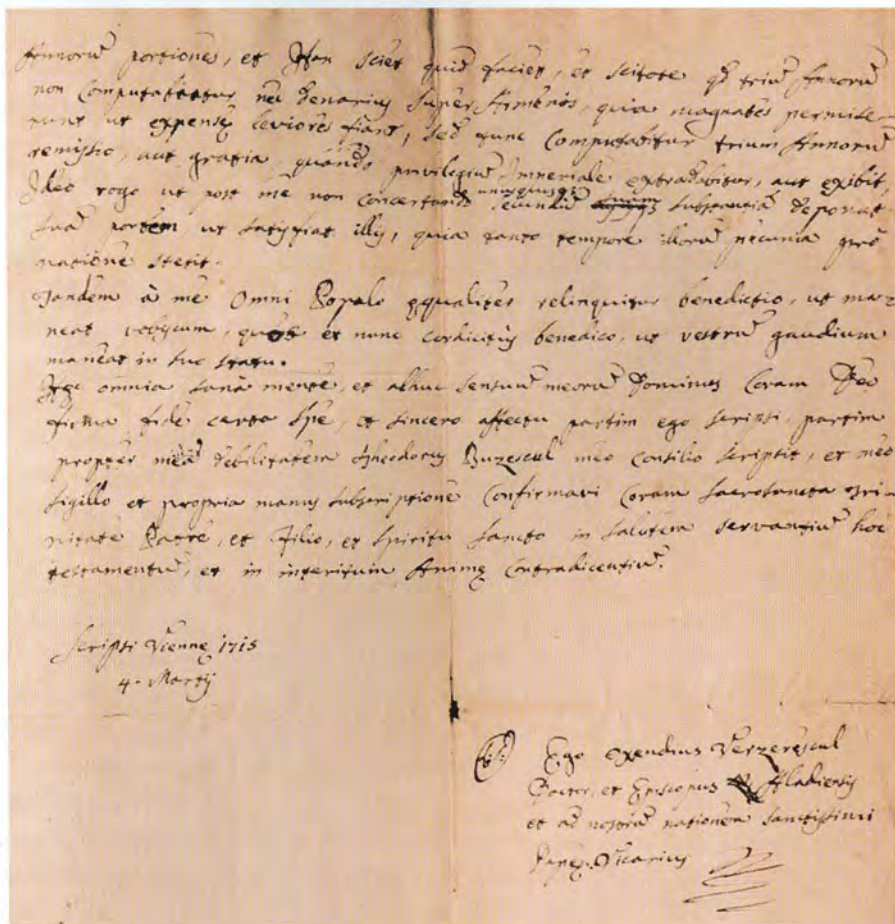 Annorũ portiones, et Ilan sciet quid faciet, et scitote qd triũ Annorũ
non Computabitur nec denarius super Armenos, quia magnates permise-
runt ut expensę leviores fiant, sed tunc Computabitur trium Annorũ
remissio, aut gratia, quando privilegiũ Imperiale extradabitur, aut exibit
Ideo rogo ut post me non concertando unusquisqȝ secundũ substantiã deponat
suã portem, ut satisfiat illis, quia tanto tempore illorũ pecunia pro
natione stetit.
Tandem à me Omni Populo ęqualiter relinquitur benedictio, ut ma-
neat vobiscum, quos et nunc cordicitus benedico, ut vestrũ gaudium
maneat in suo statu.
Hęc omnia sana mente, et adhuc sensuũ meorũ Dominus Coram Deo
firma fide certa spe, et sincero affectu partim ego scripsi, partim
propter meã debilitatem Theodorus Buzescul meo Consilio scripsit, et meo
sigillo et propria manus subscriptione Confirmavi Coram sacrosancta Tri-
nitate Patre, et Filio, et Spiritu Sancto in salutem servantiũ hoc
testamentũ, et in interitum Animę Contradicentiũ.
Scripsi Viennę 1715
4. Martij
Ego Oxendius Verzerescul
Doctor, et Episcopus Aladiensis
et ad nostrũ nationem sanctissimi
Papę Vicarius